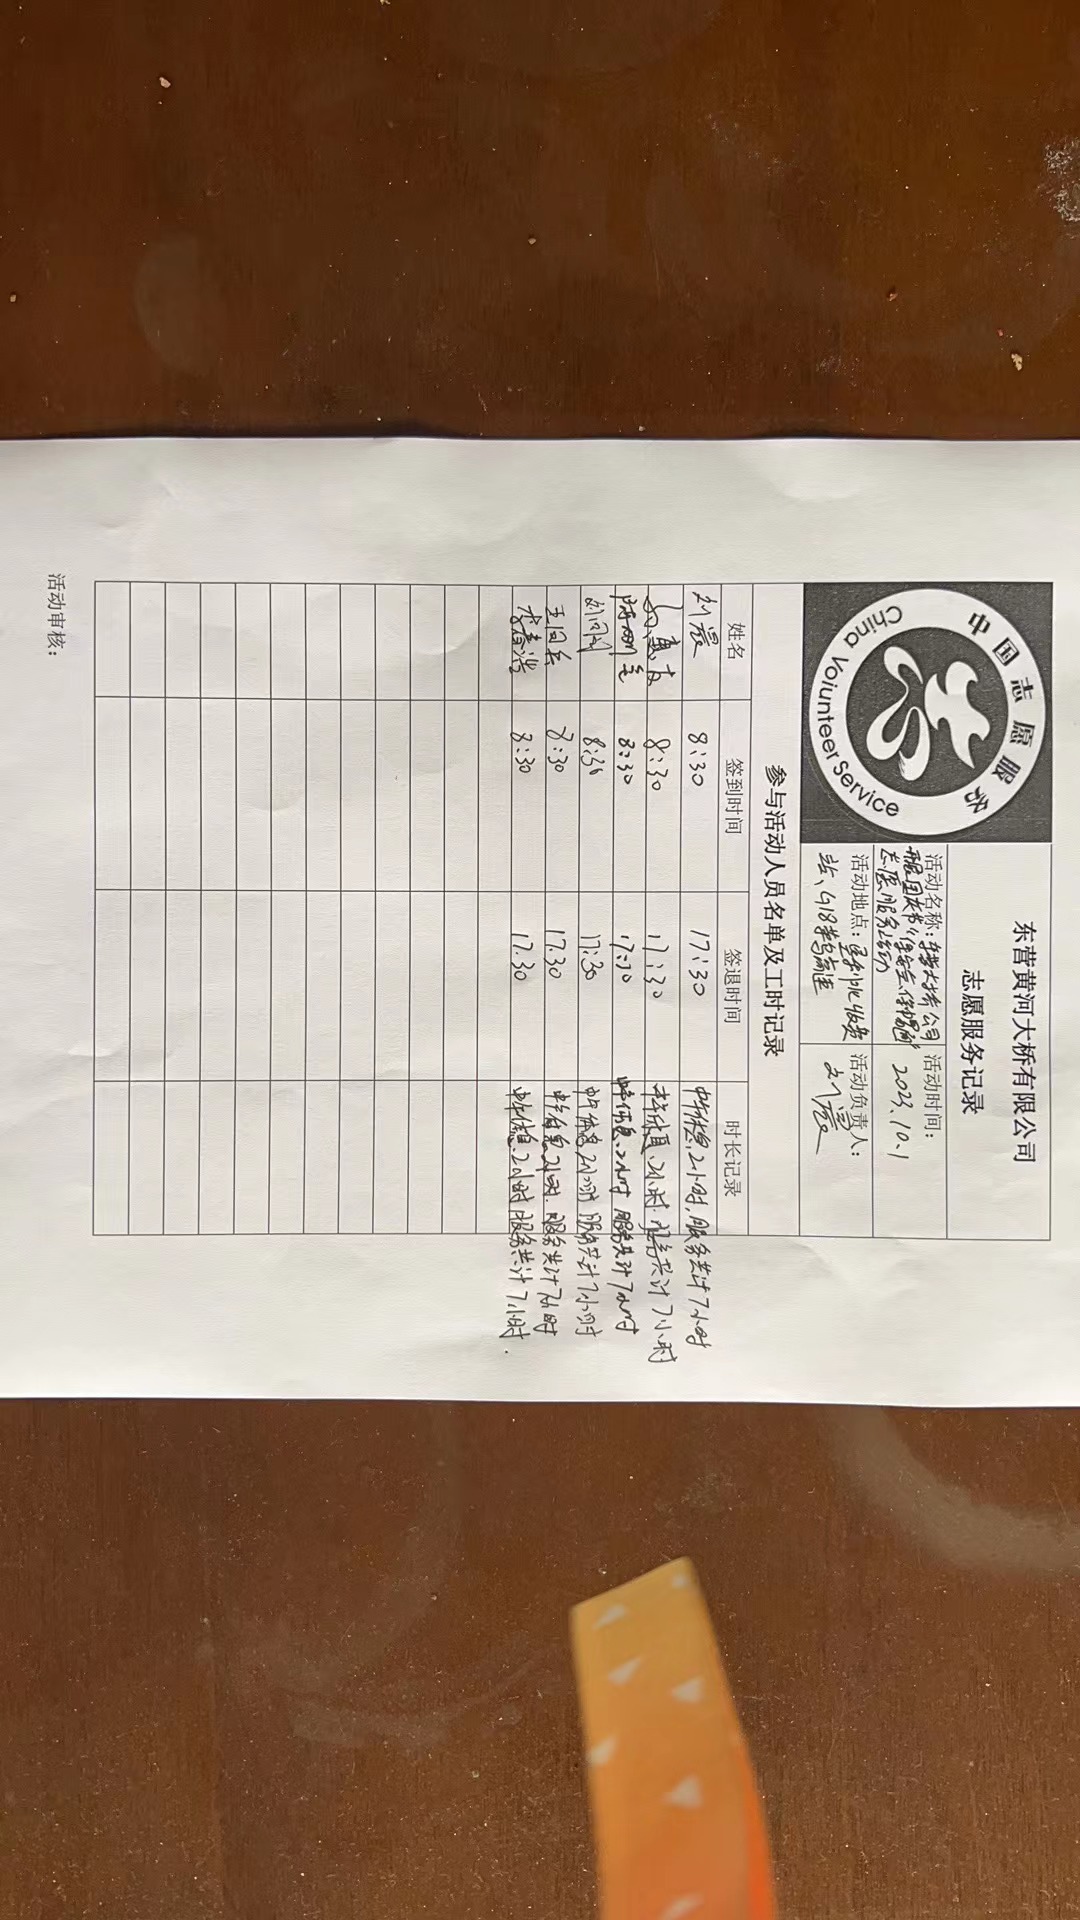 中国志愿服务
China Volunteer Service
东营黄河大桥有限公司
志愿服务记录
活动名称：
志愿服务活动
活动时间：
2023.10.1
活动地点：垦利北收费
站、G18荣乌高速
活动负责人：
刘震
参与活动人员名单及工时记录
姓名 签到时间 签退时间 时长记录
刘震 8:30 17:30 中午休息2小时,服务共计7小时
8:30 17:30 中午休息2小时.服务共计7小时
陈明 8:30 17:30 中午休息2小时 服务共计7小时
8:30 17:30 中午休息2小时 服务共计7小时
王同兵 8:30 17.30 中午休息2小时.服务共计7小时
李春浩 8:30 17.30 中午休息2小时 服务共计7小时.
活动审核：